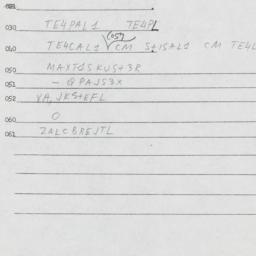 030 TE4PAL1 TE4PL
(057)
040 TE4CAL1 CM S+15AL1 CM TE4L
050 MAXTGSKUS+3R
051 - QPAJS3X
052 VA, JKS+EFL
060 O
061 ZALCBREJTL